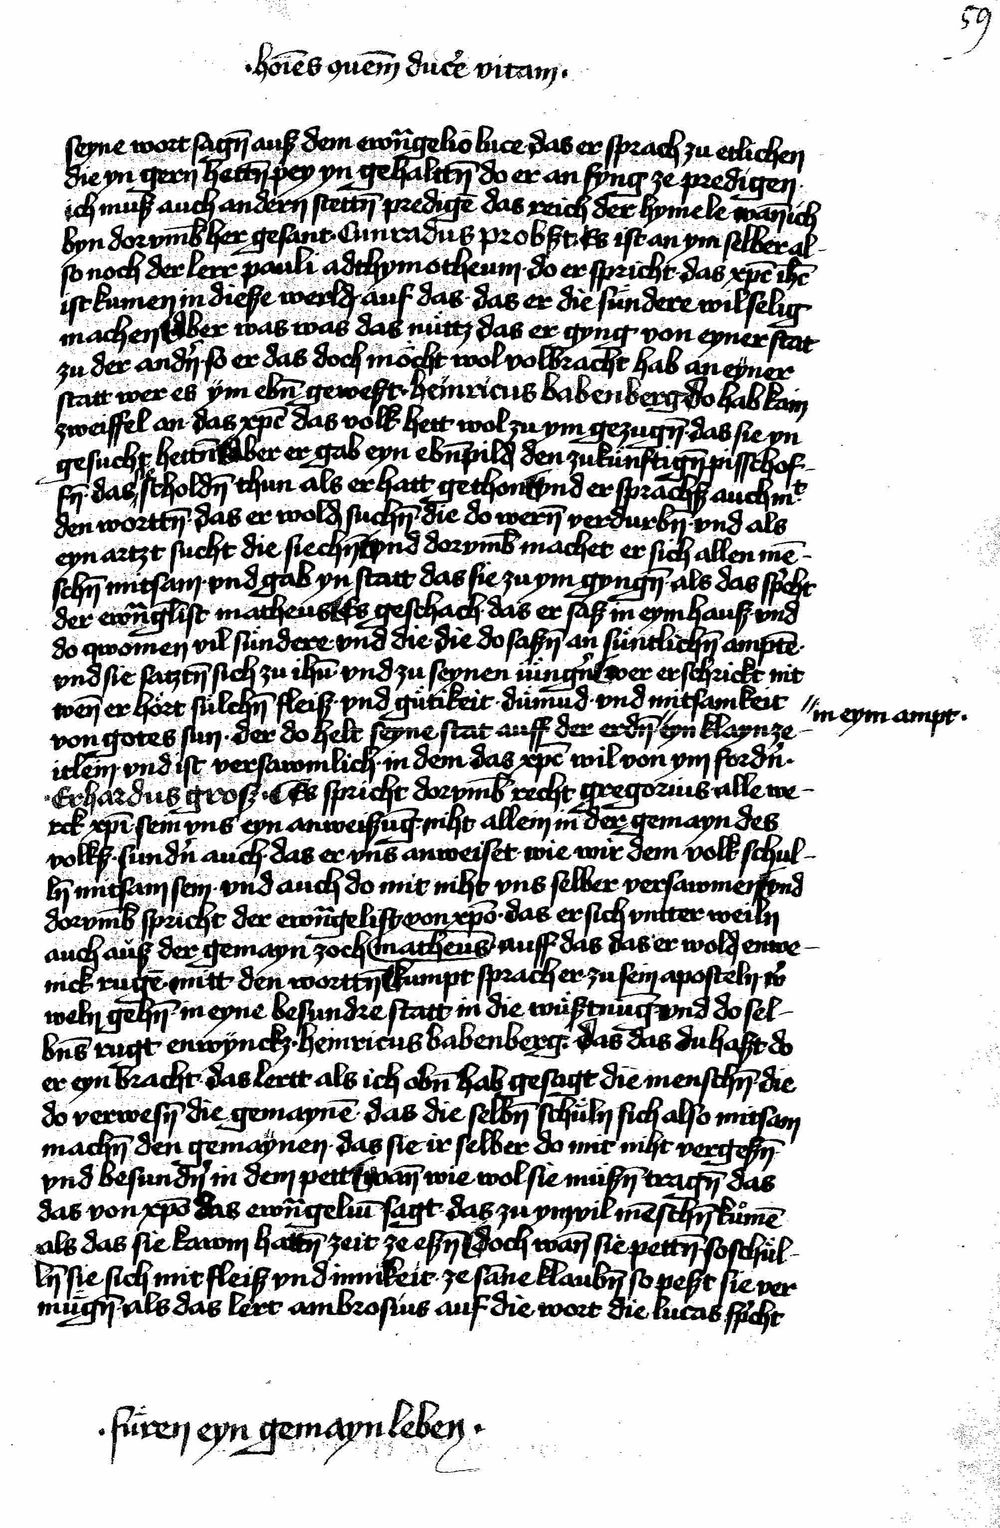 59
·hoīes quem̄ duc͛e vitam·
seyne wort sagn̄ auß dem ewn̄gelio luce das er sprach zu etlichen
die yn gern hettn̄ pey yn gehalttn̄ do er an fyng ze predigen·
ich muß auch andern stettn̄ predigē das reich der hymele wan̄ ich
byn dorvmb her gesant· Cunradus probßt· Es ist an ym selber al-
so noch der lerr pauli adthymotheum· do er spricht· das xp̄c ihc̄
ist kumen in dieße werld· auf das· das er die sündere wil selig
machen Aber was was das nüttz das er gyng von eyner stat
zu der andn̄· so er das doch möcht wol volbracht hab an eyner
statt wer es ym ebn̄ geweßt· heinricus babenberg Do hab kain
zweiffel an· das xp̄c das volk hett wol zu ym gezugn̄· das sie yn
gesucht hettn̄ Aber er gab eyn ebn̄pild den zukünftign̄ pisschof-
fn̄· das scholdn̄ thun als er hatt gethon vnd er sprachß auch mͭ
den worttn̄· das er wold suchn̄ die do wern̄ verdurbn̄· vnd als
eyn artzt sucht die siechn̄ vnd dorvmb machet er sich allen mē-
schn̄ mitsam· vnd gab yn statt das sie zu ym gyngn̄· als das sp͛cht
der ewn̄glist matheus Es geschach· das er saß in eym hauß· vnd
do qwomen vil sündere· vnd die· die do saßn̄ an süntlichn̄ amptē·
vnd sie satztn̄ sich zu ihū· vnd zu seynen iüngn̄ wer erschrickt nit
wen̄ er hört sülchn̄ fleiß· vnd gütikeit· dümud· vnd mitsamkeit
in eym ampt·
von gotes sun· der do helt seyne stat auff der erdn̄ eyn klayn ze-
itlein· vnd ist versawmlich· in dem das xp̄c wil von ym fordn̄·
·Erhardus groß· Es spricht dorvmb recht gregorius· alle we-
rck xp̄i· sein vns eyn anweißūg· niht allein in der gemayn des
volkß· sundn̄ auch· das er vns anweiset· wie wir dem volk schul-
ln̄ mitsam sein· vnd auch do mit niht vns selber versawmen vnd
dorvmb spricht der ewn̄gelist von xp̄o· das er sich vntter weiln
auch auß der gemayn zoch matheus· auff das das er wold enwe-
nick rugē· mitt den worttn̄ kumpt sprach er zu sein aposteln w͛
weln gehn̄ in eyne besundre statt in die wüstnūg· vnd do sel-
bns rugt enwynckz· heinricus babenberg· das das du haßt do
er eyn bracht· das lertt als ich obn̄ hab gesagt die menschn̄· die
do verwesn̄ die gemaynē· das die selbn̄ schüln sich also mitsam
machn̄ den gemaynen· das sie ir selber do mit niht vergeßn̄
vnd besundn̄ in dem pett wan̄ wie wol sie müßn̄ tragn̄ das
das von xp̄o das ewn̄geliū sagt· das zu ym vil mēschn̄ kumē
als das sie kawm hattn̄ zeit ze eßn̄ Doch wan̄ sie pettn̄· so schül-
ln̄ sie sich mit fleiß vnd innikeit· ze sāne klaubn̄ so peßt sie ver
mügn̄· als das lert ambrosius auf die wort die lucas sp͛cht
·füren eyn gemayn leben·